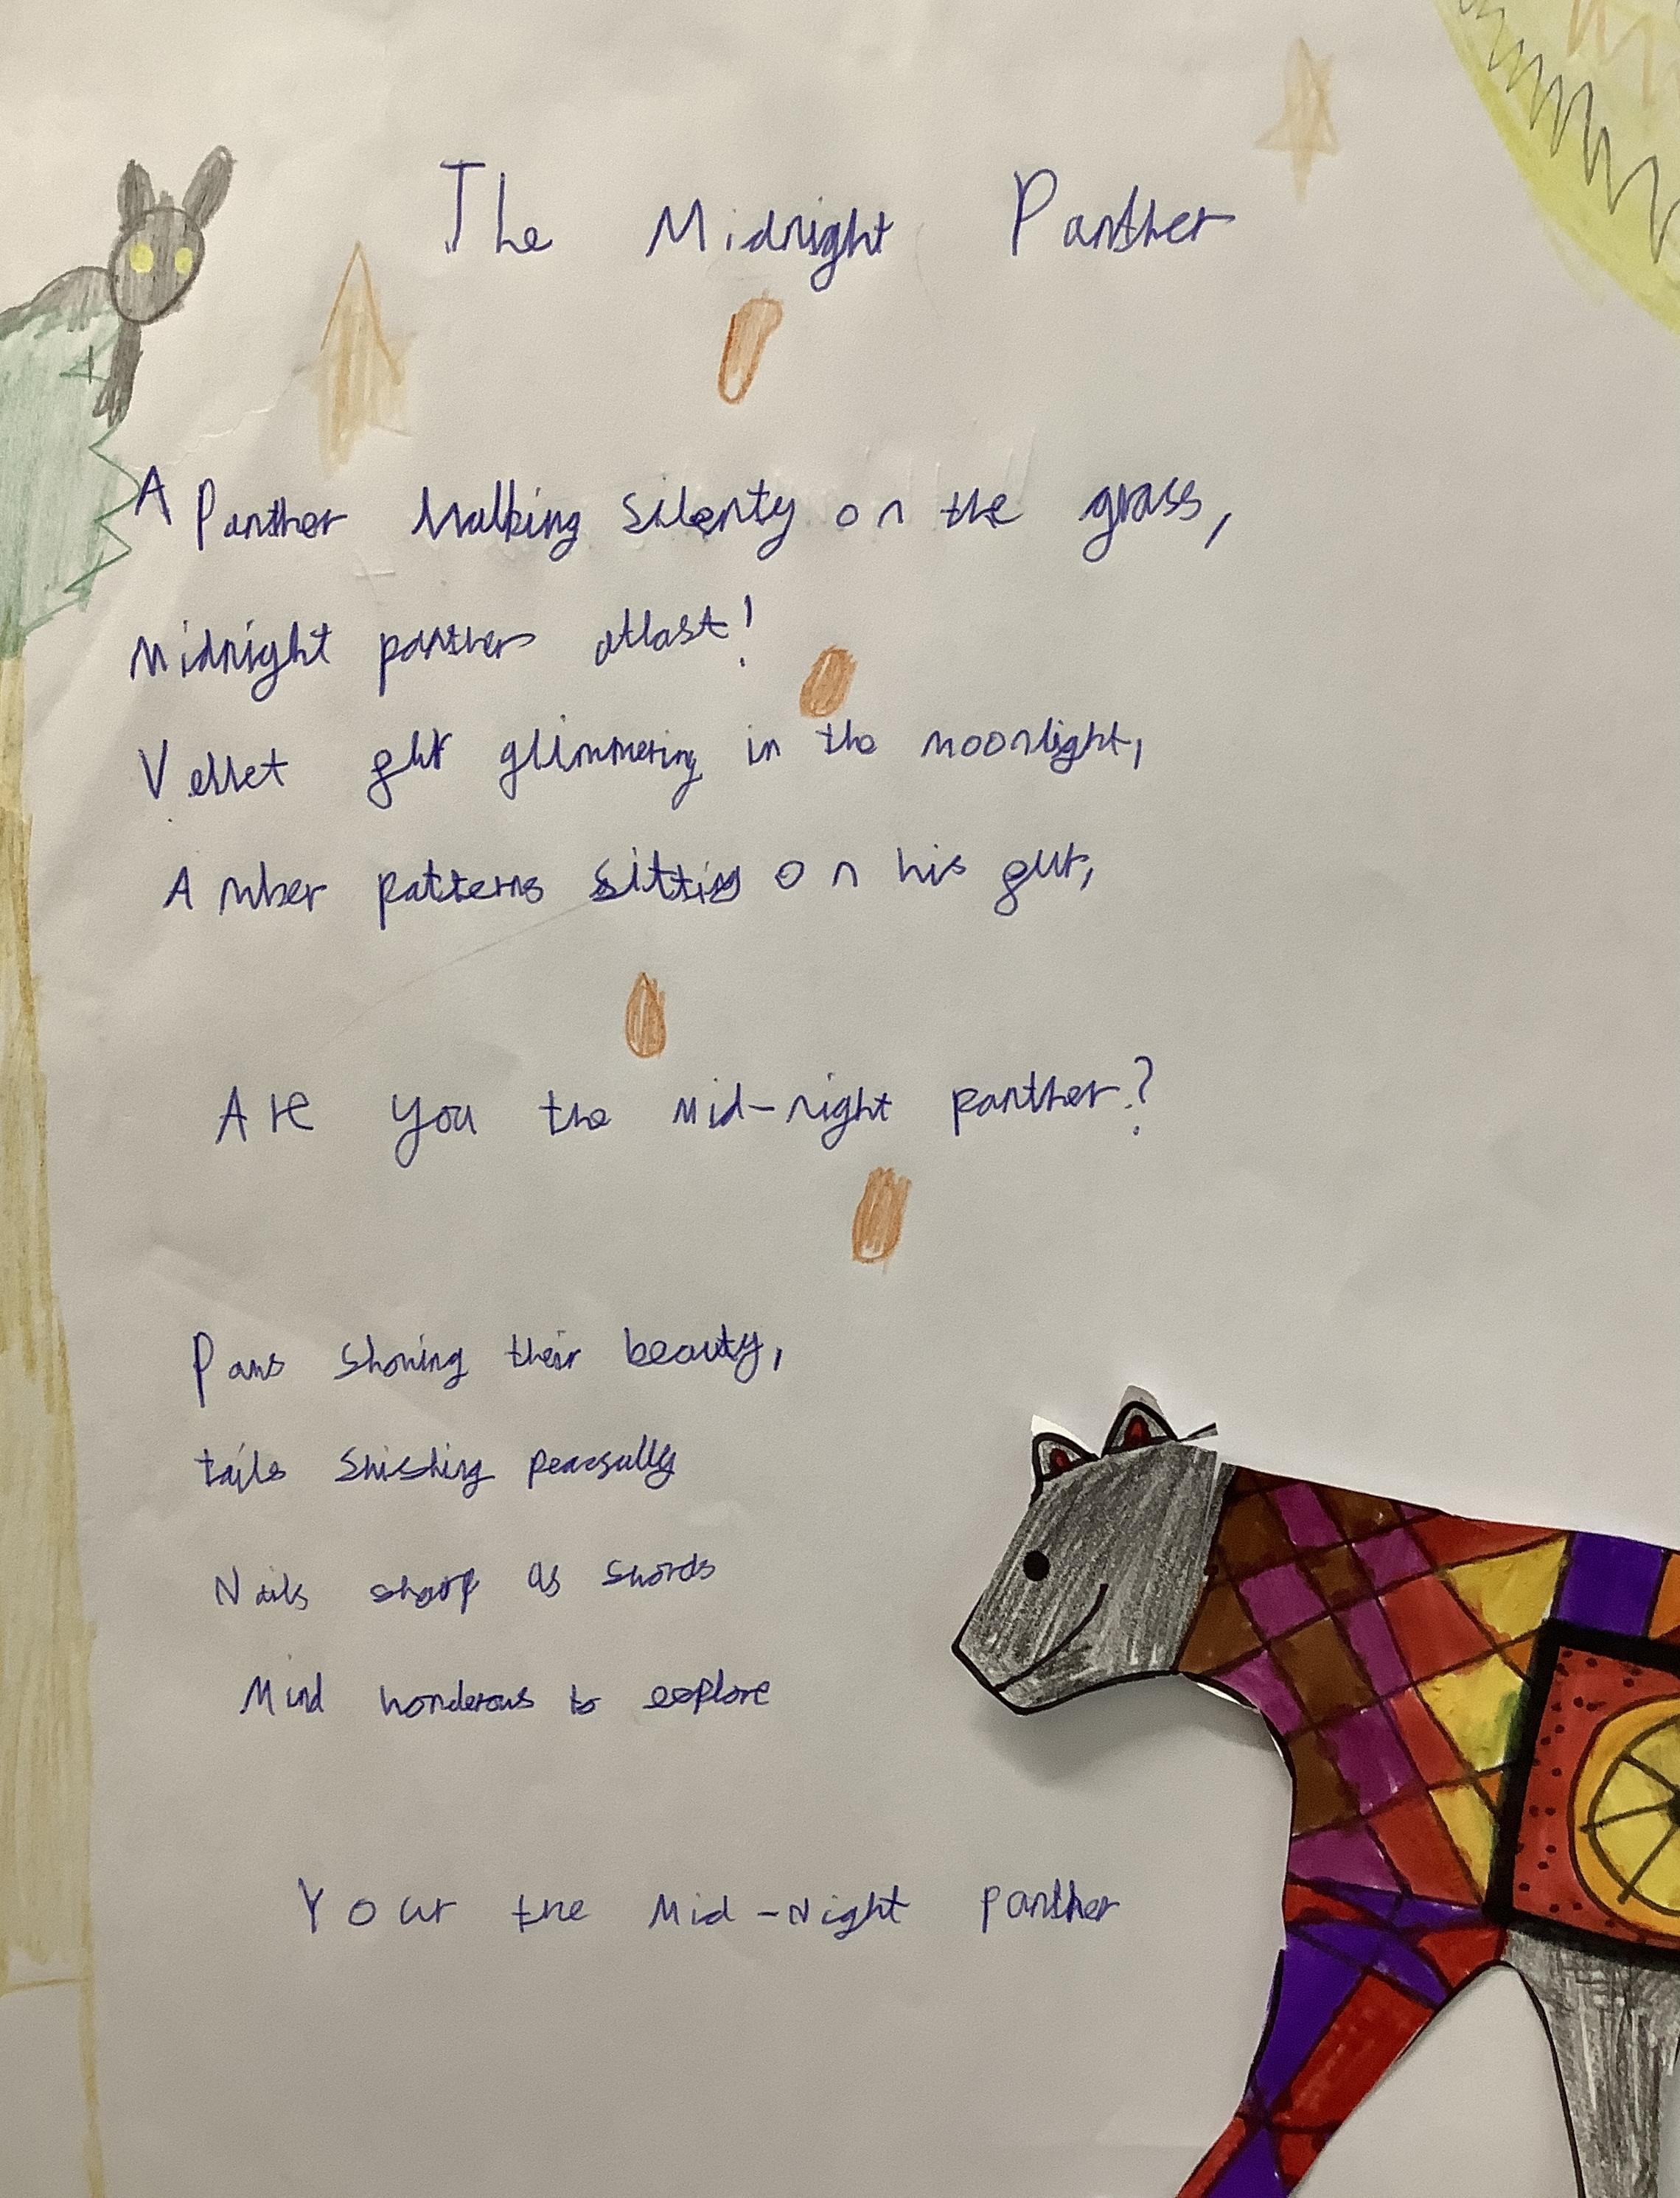 The Midnight Panther
A Panther Walking Silenty on the grass,
Midnight panther atlast!
Velvet fur glimmering in the moonlight,
Amber patterns sitting on his fur,
Are you the Mid-night panther?
Paws showing their beauty,
tails swishing peacefully
Nails sharp as swords
Mind wonderous to explore
Your the Mid-Night panther